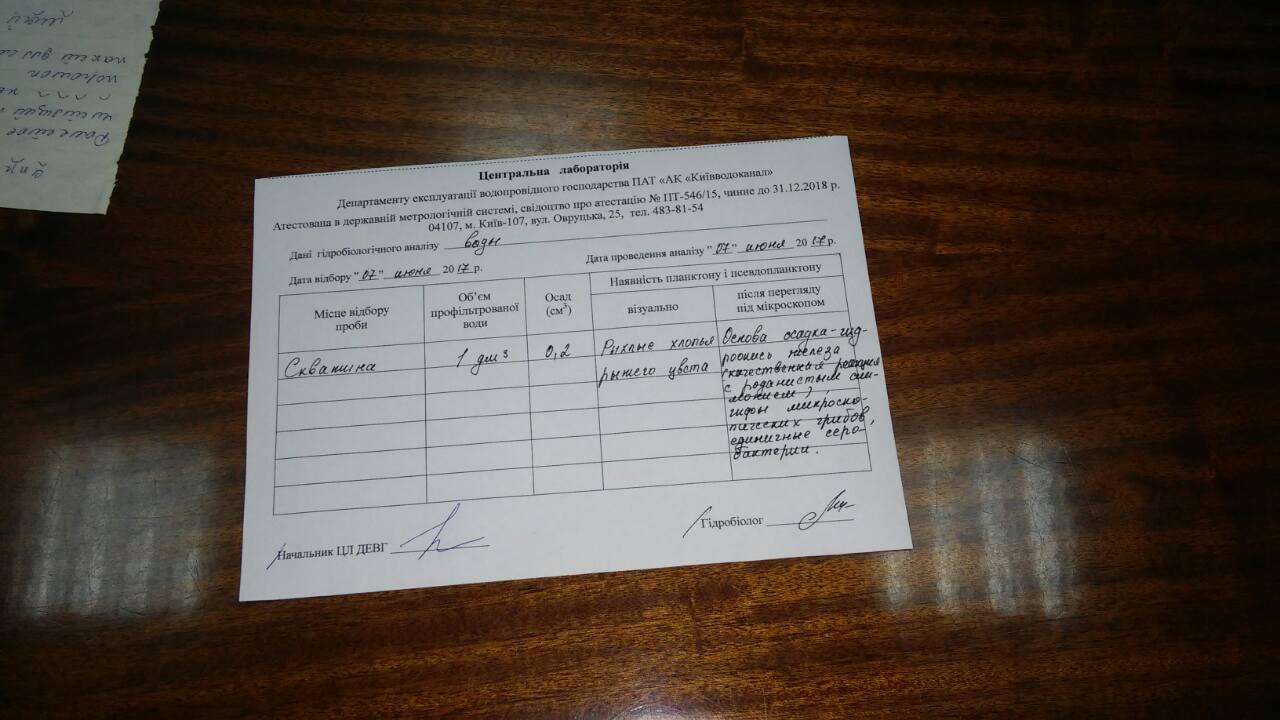 Центральна лабораторія
Департаменту експлуатації водопровідного господарства ПАТ «АК «Київводоканал»
Атестована в державній метрологічній системі, свідоцтво про атестацію № ПТ-546/15, чинне до 31.12.2018 р.
04107, м. Київ-107, вул. Овруцька, 25, тел. 483-81-54
Дані гідробіологічного аналізу воды
Дата відбору "07" июня 2017 р. Дата проведення аналізу "07" июня 2017 р.
Місце відбору
проби
Об’єм
профільтрованої
води
Осад
(см³)
Наявність планктону і псевдопланктону
візуально
після перегляду
під мікроскопом
Скважина
1 дм³
0,2
Рыхлые хлопья
рыжего цвета
Основа осадка-гид-
роокись железа
(качественная реакция
с роданистым
),
гифы микроско-
пических грибов,
единичные серо-
бактерии.
Начальник ЦЛ ДЕВГ
Гідробіолог